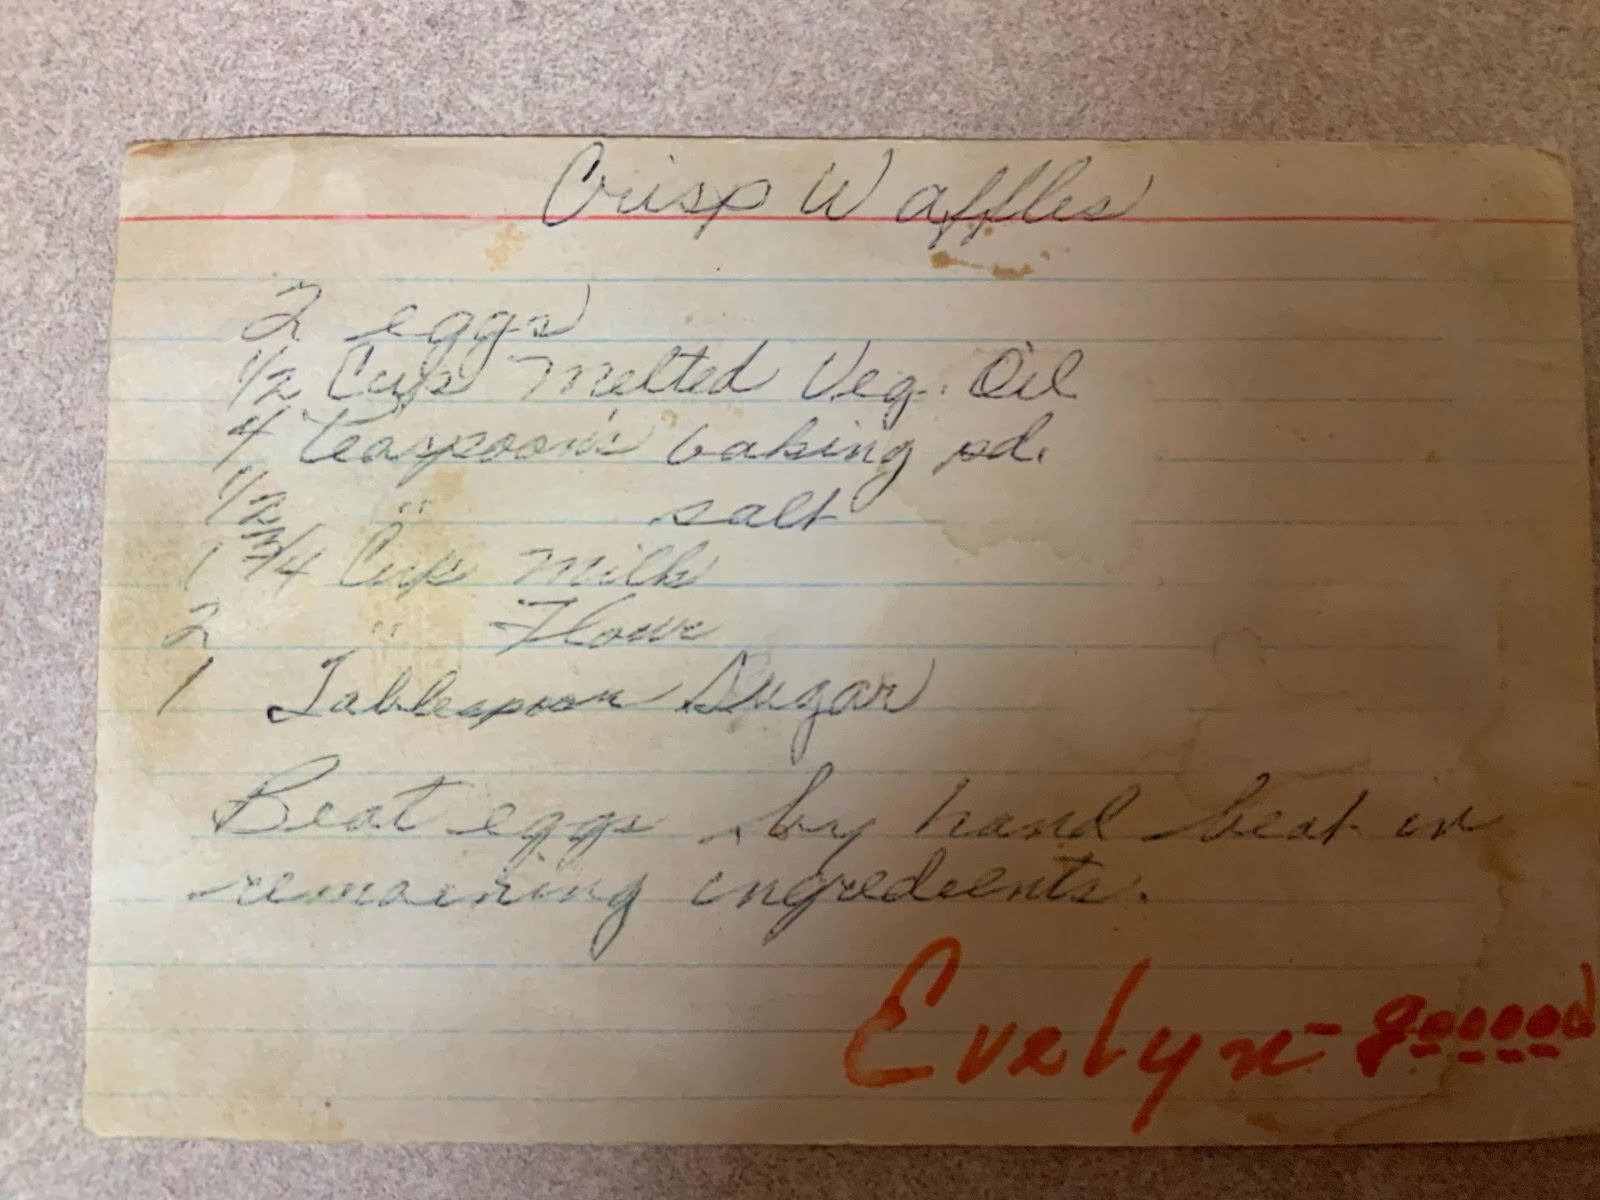 Crisp Waffles
2 eggs
1/2 Cup Melted Veg. Oil
4 teaspoons baking pd.
1/2 " salt
1 3/4 Cup Milk
2 " Flour
1 Tablespoon Sugar
Beat eggs by hand beat in
remaining ingredients.
Evelyn - gooood